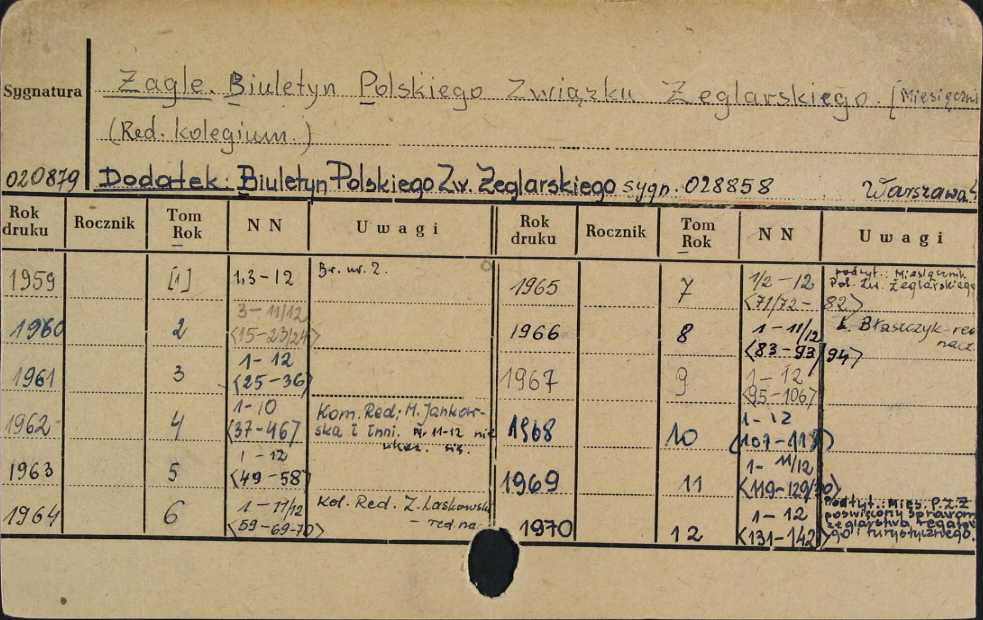 Sygnatura
Żagle. Biuletyn Polskiego Związku Żeglarskiego. [Miesięczni
(Red. Kolegium.)
020879 Dodatek: Biuletyn Polskiego Zw. Żeglarskiego sygn. 028858 Warszawa
Rok druku Rocznik Tom Rok NN Uwagi Rok druku Rocznik Tom Rok NN Uwagi
1959 [1] 1,3-12 Br. nr. 2. 1965 7 1/2-12 <71/72-82> podtyt.: Miesięcznik Pol. Zw. Żeglarskiego
1960 2 3-11/12 <15-23/24> 1966 8 1-11/12 <83-93/94> L. Błaszczyk-red nacz.
1961 3 1-12 <25-36> 1967 9 1-12 <95-106>
1962 4 1-10 <37-46> Kom. Red: M. Jankowska i inni. Nr 11-12 nie ukaz. się. 1968 10 1-12 <107-118>
1963 5 1-12 <49-58> 1969 11 1-11/12 <119-129/30>
1964 6 1-11/12 <59-69-70> Kol. Red. Z. Laskowski - red na 1970 12 1-12 <131-142> Podtyt.: Mies. P.Z.Ż poświęcony sprawom żeglarstwa regatowego i turystycznego.